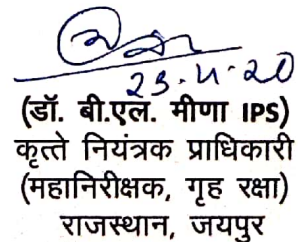 23-11-20
(डॉ. बी.एल. मीणा IPS)
कृत्ते नियंत्रक प्राधिकारी
(महानिरीक्षक, गृह रक्षा)
राजस्थान, जयपुर